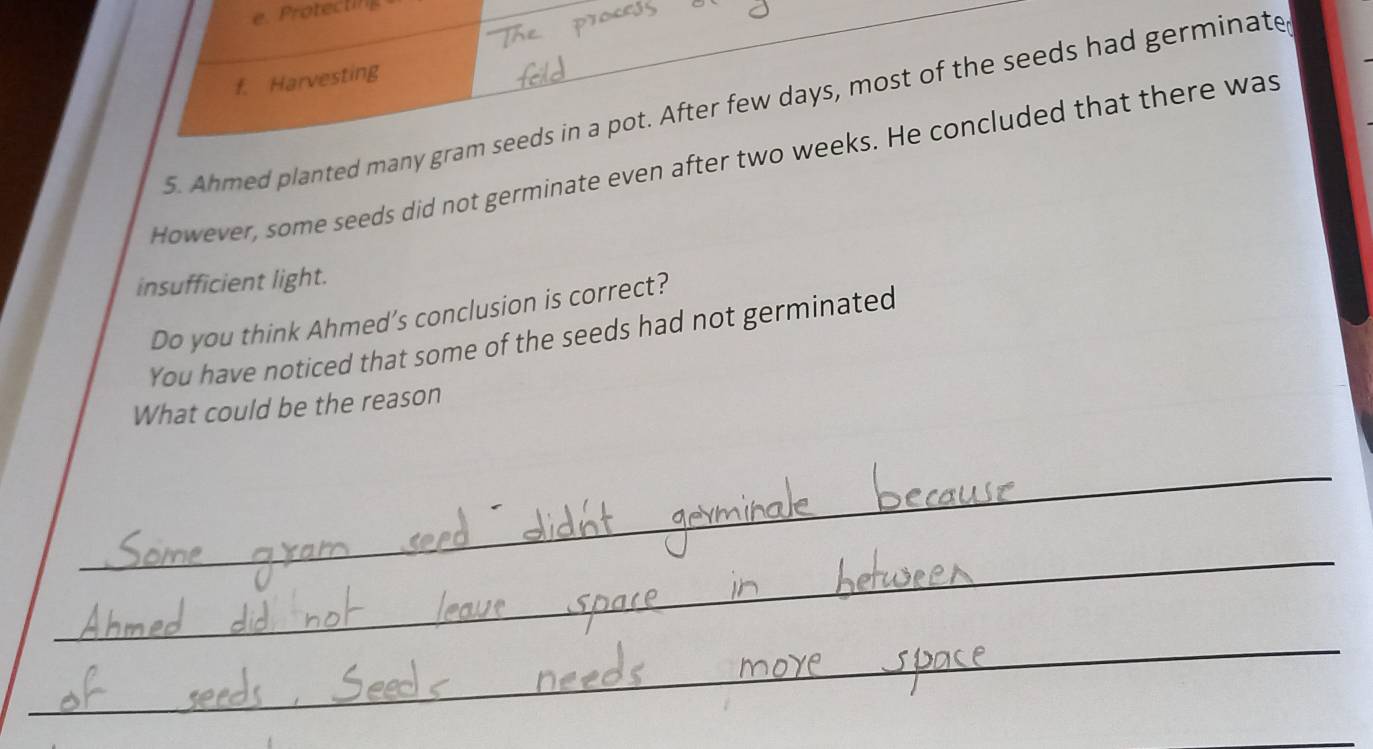 e. Protecting
The process
f. Harvesting
feild
5. Ahmed planted many gram seeds in a pot. After few days, most of the seeds had germinated
However, some seeds did not germinate even after two weeks. He concluded that there was
insufficient light.
Do you think Ahmed's conclusion is correct?
You have noticed that some of the seeds had not germinated
What could be the reason
Some gram seed didn't germinate because
Ahmed did not leave space in between
of seeds. Seeds needs more space